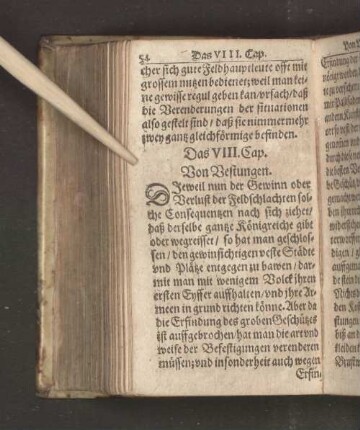 54 Das VIII. Cap.
cher sich gute Feldhauptleute offt mit
grossem nutzen bedienet; weil man kei-
ne gewisse regul geben kan / vrsach / daß
die Verenderungen der situationen
also gestelt sind / daß sie nimmermehr
zwey gantz gleichförmige befinden.
Das VIII. Cap.
Von Vestungen.
Dieweil nun der Gewinn oder
Verlust der Feldschlachten sol-
che Consequentzen nach sich ziehet /
daß derselbe gantze Königreiche gibt
oder wegreisset / so hat man geschlos-
sen / den gewinsichtigen veste Städte
vnd Plätze entgegen zu bawen / dar-
mit man mit wenigem Volck jhren
ersten Eyffer auffhalten / vnd jhre Ar-
meen in grund richten könne. Aber da
die Erfindung des groben Geschützes
ist auffgebrochen / hat man die art vnd
weise der Befestigungen verenderen
müssen; vnd insonderheit auch wegen
Erfin-